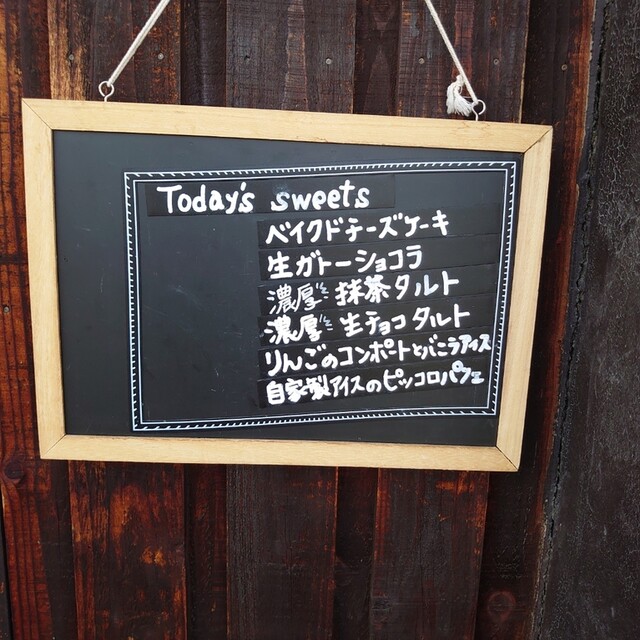 Today's sweets
ベイクドチーズケーキ
生ガトーショコラ
濃厚 抹茶タルト
濃厚 生チョコタルト
りんごのコンポートとバニラアイス
自家製アイスのピッコロパフェ